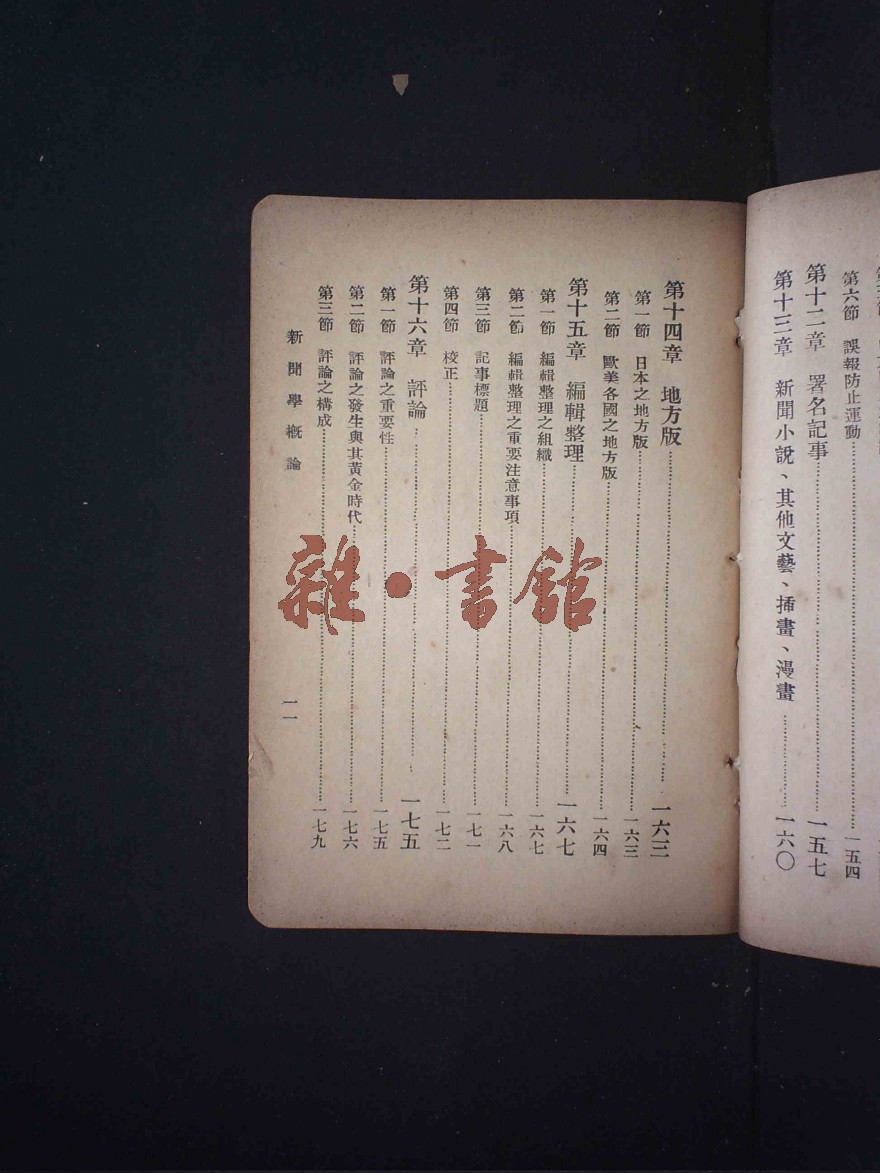 第六節　誤報防止運動……一五四
第十二章　署名記事……一五七
第十三章　新聞小說、其他文藝、插畫、漫畫……一六〇
第十四章　地方版……一六三
第一節　日本之地方版……一六三
第二節　歐美各國之地方版……一六四
第十五章　編輯整理……一六七
第一節　編輯整理之組織……一六七
第二節　編輯整理之重要注意事項……一六八
第三節　記事標題……一七一
第四節　校正……一七二
第十六章　評論……一七五
第一節　評論之重要性……一七五
第二節　評論之發生與其黃金時代……一七六
第三節　評論之構成……一七九
新聞學概論
一一
雜·書館